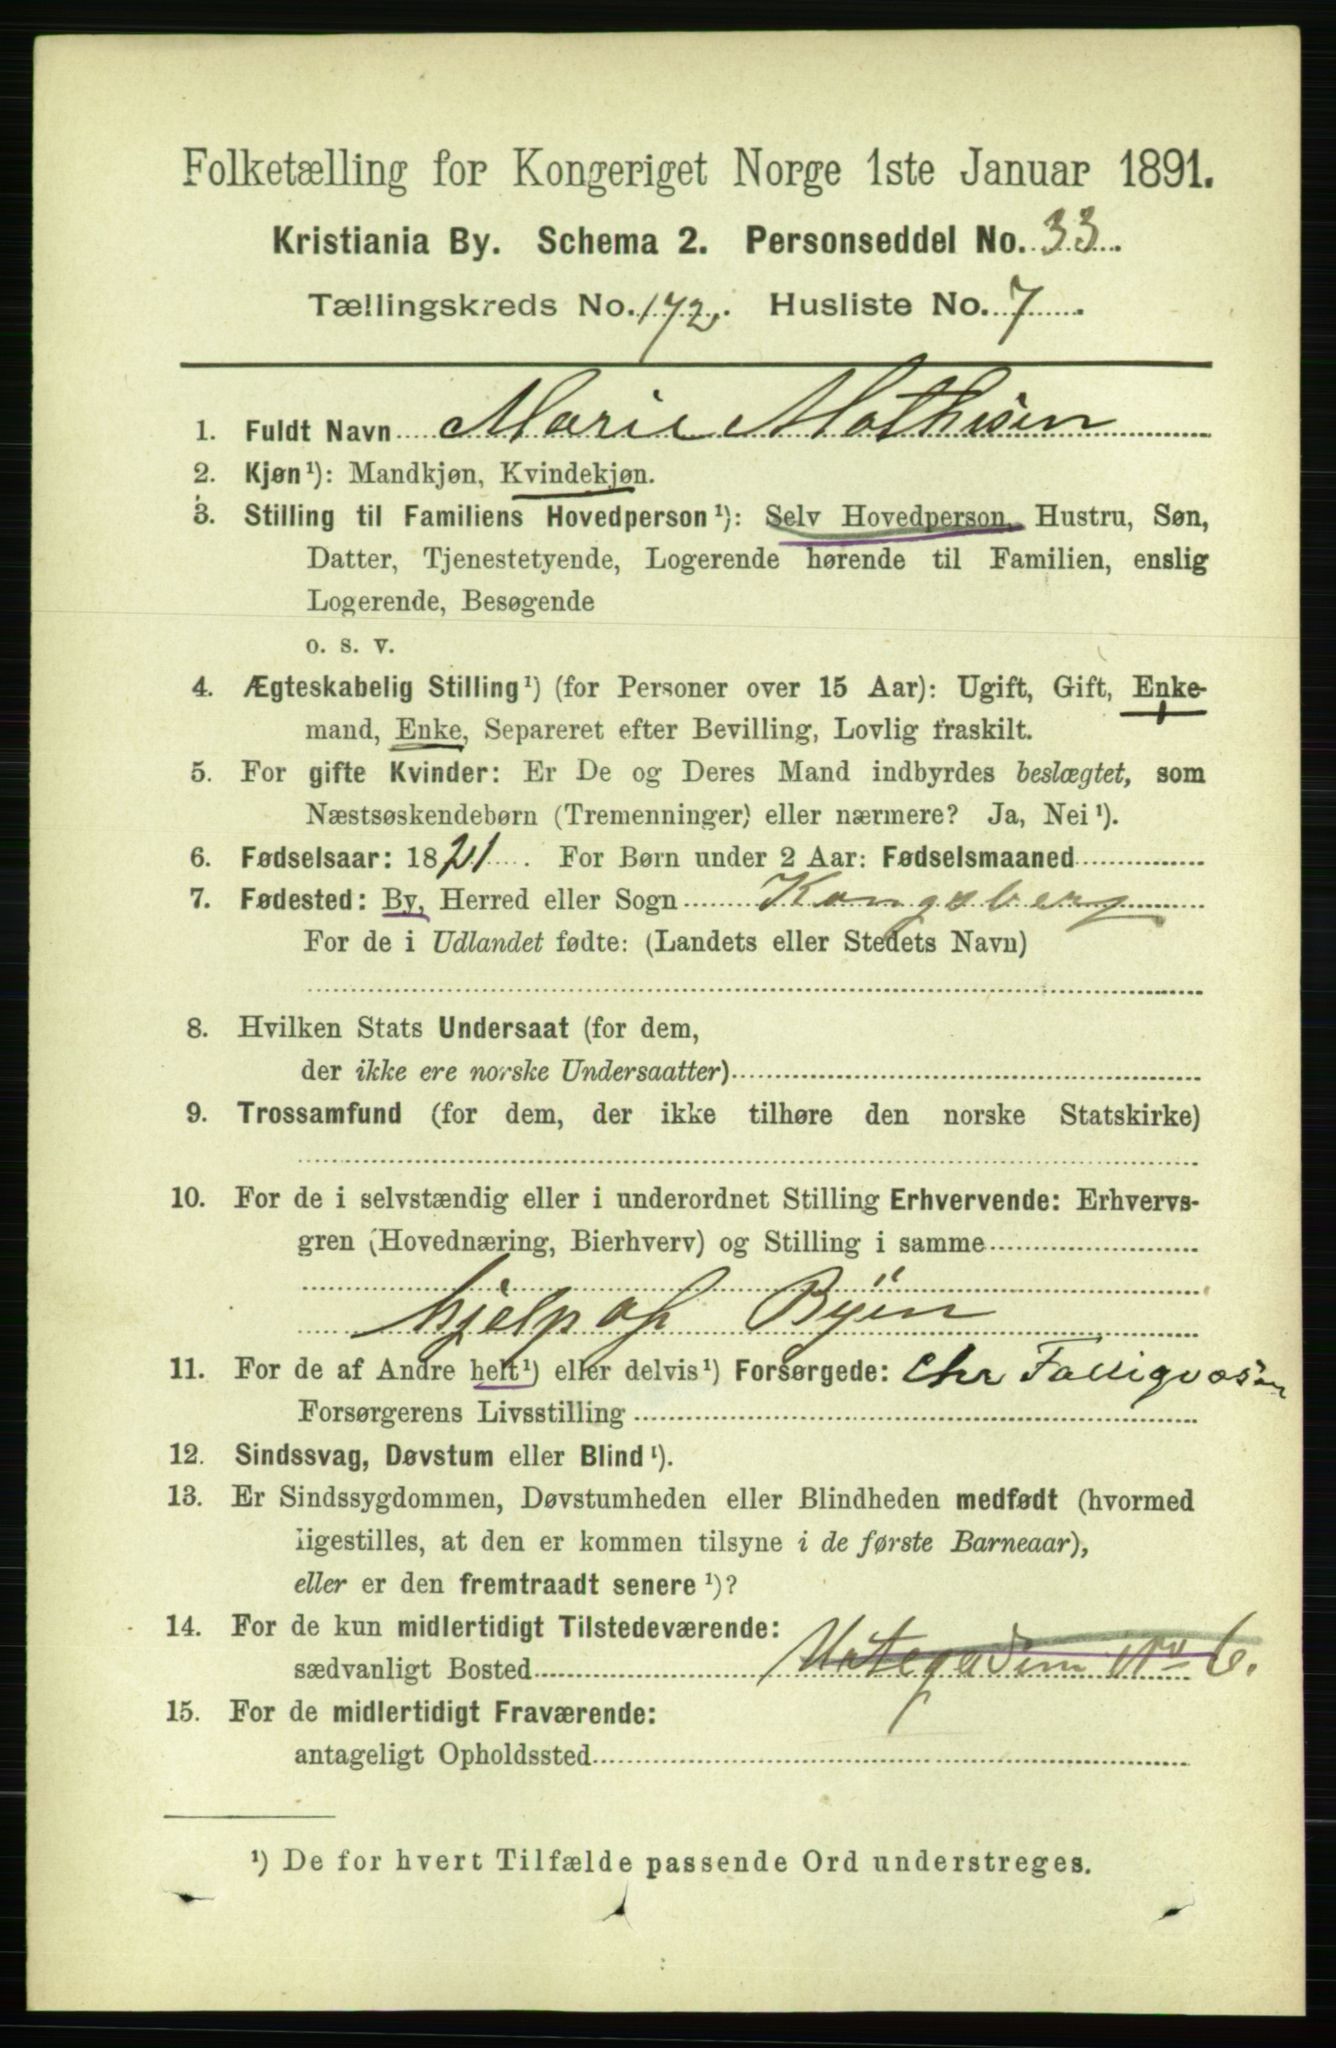 Folketælling for Kongeriget Norge 1ste Januar 1891.
Kristiania By. Schema 2. Personseddel No. 33.
Tællingskreds No. 172. Husliste No. 7.
1. Fuldt Navn Marie Mathisen
2. Kjøn¹): Mandkjøn, Kvindekjøn.
3. Stilling til Familiens Hovedperson¹): Selv Hovedperson, Hustru, Søn,
Datter, Tjenestetyende, Logerende hørende til Familien, enslig
Logerende, Besøgende
o. s. v.
4. Ægteskabelig Stilling¹) (for Personer over 15 Aar): Ugift, Gift, Enke-
mand, Enke, Separeret efter Bevilling, Lovlig fraskilt.
5. For gifte Kvinder: Er De og Deres Mand indbyrdes beslægtet, som
Næstsøskendebørn (Tremenninger) eller nærmere? Ja, Nei¹).
6. Fødselsaar: 1821. For Børn under 2 Aar: Fødselsmaaned
7. Fødested: By, Herred eller Sogn Kongsberg
For de i Udlandet fødte: (Landets eller Stedets Navn)
8. Hvilken Stats Undersaat (for dem,
der ikke ere norske Undersaatter)
9. Trossamfund (for dem, der ikke tilhøre den norske Statskirke)
10. For de i selvstændig eller i underordnet Stilling Erhvervende: Erhvervs-
gren (Hovednæring, Bierhverv) og Stilling i samme
hjelp af Byen
11. For de af Andre helt¹) eller delvis¹) Forsørgede: Chr
Forsørgerens Livsstilling
12. Sindssvag, Døvstum eller Blind¹).
13. Er Sindssygdommen, Døvstumheden eller Blindheden medfødt (hvormed
ligestilles, at den er kommen tilsyne i de første Barneaar),
eller er den fremtraadt senere¹)?
14. For de kun midlertidigt Tilstedeværende:
sædvanligt Bosted No 6.
15. For de midlertidigt Fraværende:
antageligt Opholdssted
¹) De for hvert Tilfælde passende Ord understreges.